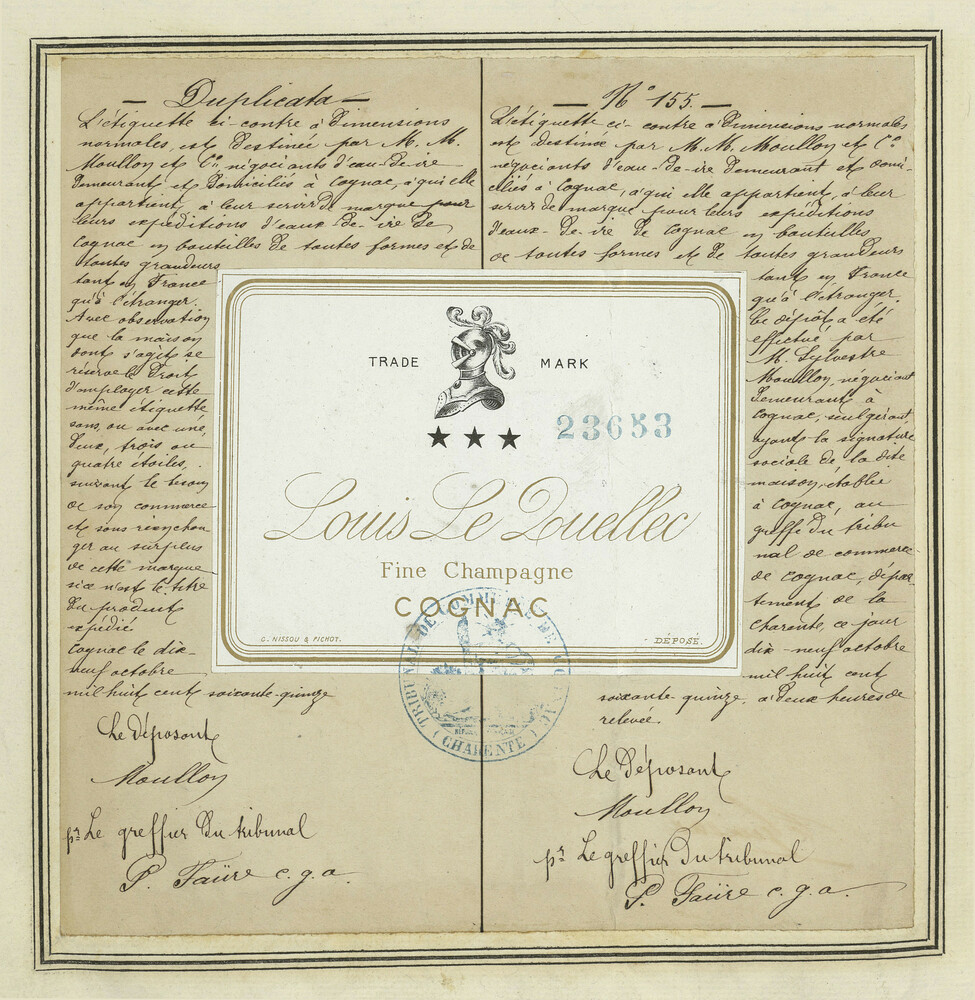 — Duplicata —
L'étiquette ci-contre à dimensions
normales, est destinée par M. M.
Moullon et Cie, négociants d'eau-de-vie
demeurant et domiciliés à Cognac, à qui elle
appartient, à leur servir de marque pour
leurs expéditions d'eaux-de-vie de
Cognac en bouteilles de toutes formes et de
toutes grandeurs
tant en France
qu'à l'étranger.
Avec observation
que la maison
dont s'agit se
réserve le droit
d'employer cette
même étiquette
sans, ou avec une,
deux, trois ou
quatre étoiles,
suivant le besoin
de son commerce
et sans rien chan
ger au surplus
de cette marque
si ce n'est le titre
du produit
expédié
Cognac le dix-
neuf octobre
mil huit cent soixante-quinze
Le déposant
Moullon
pr Le greffier du tribunal
P. Faüre c.g.a.
— No 155. —
L'étiquette ci-contre à dimensions normales
est destinée par M. M. Moullon et Co
négociants d'eau-de-vie demeurant et domi-
ciliés à Cognac, à qui elle appartient, à leur
servir de marque pour leurs expéditions
d'eaux-de-vie de Cognac en bouteilles
de toutes formes et de toutes grandeurs
tant en France
qu'à l'étranger.
Ce dépôt a été
effectué par
M. Sylvestre
Moullon, négociant
demeurant à
Cognac, seul gérant
ayant la signature
sociale de la dite
maison, établie
à Cognac, au
greffe du tribu
nal de commerce
de Cognac, dépar-
tement de la
Charente, ce jour
dix-neuf octobre
mil huit cent
soixante quinze, à deux heures de
relevée.
Le Déposant
Moullon
pr Le greffier du tribunal
P. Faüre c.g.a.
TRADE MARK
★ ★ ★
23653
Louis Le Quellec
Fine Champagne
COGNAC
G. NISSOU & PICHOT.
DÉPOSÉ.
TRIBUNAL DE COMMERCE DE COGNAC
(CHARENTE)